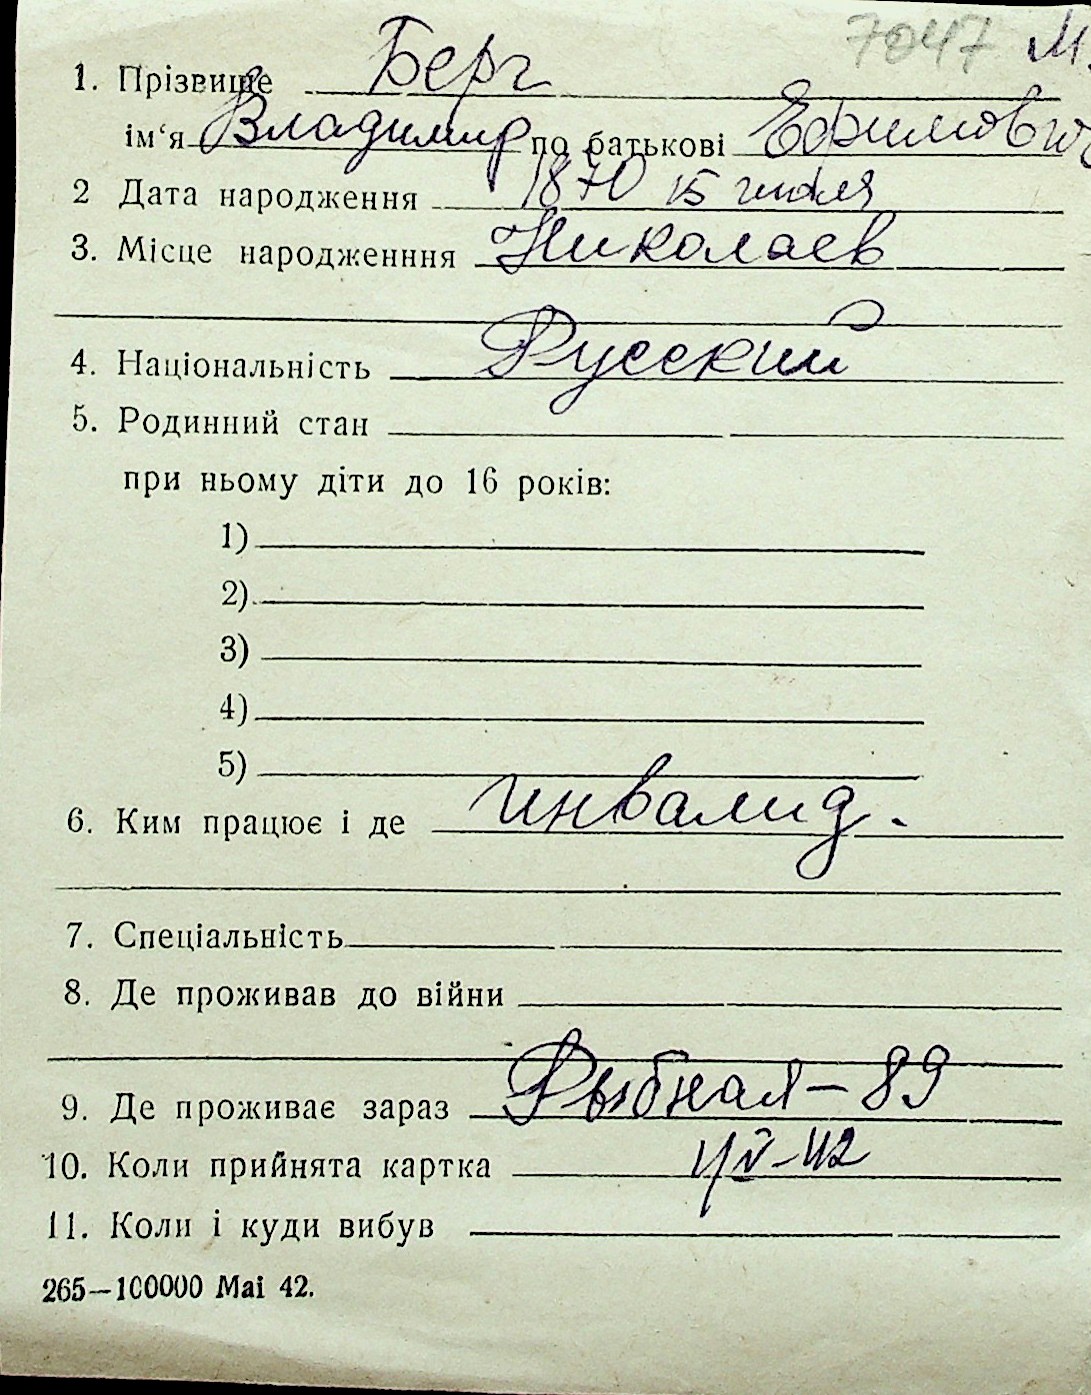 7047 М.
1. Прізвище Берг
ім‘я Владимир по батькові Ефимович
2 Дата народження 1870 15 июля
3. Місце народженння Николаев
4. Національність Русский
5. Родинний стан
при ньому діти до 16 років:
1)
2)
3)
4)
5)
6. Ким працює і де инвалид.
7. Спеціальність
8. Де проживав до війни
9. Де проживає зараз Рыбная – 89
10. Коли прийнята картка
11. Коли і куди вибув
265—100000 Mai 42.